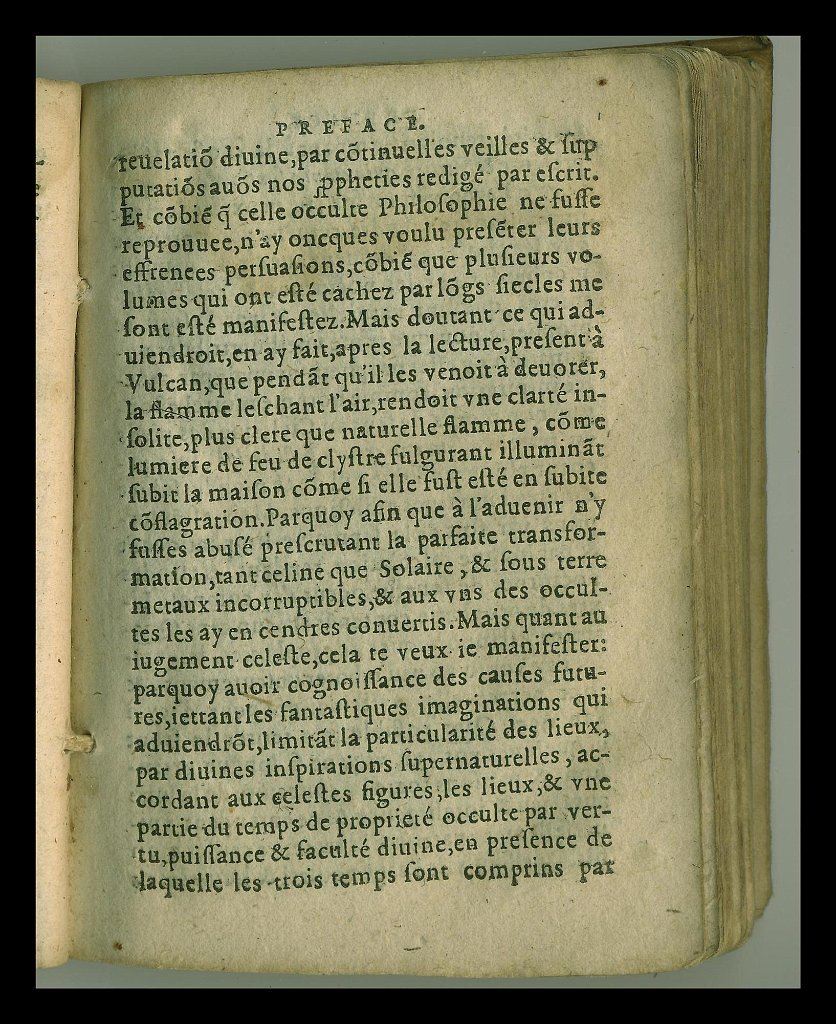 PREFACE.
reuelatiõ diuine,par cõtinuelles veilles & ſup
putatiõs auõs nos ꝓpheties redigé par eſcrit.
Et cõbiẽ q̃ celle occulte Philoſophie ne fuſſe
reprouuee,n'ay oncques voulu preſẽter leurs
effrenees perſuaſions,cõbiẽ que pluſieurs vo-
lumes qui ont eſté cachez par lõgs ſiecles me
ſont eſté manifeſtez.Mais doutant ce qui ad-
uiendroit,en ay fait,apres la lecture,preſent à
Vulcan,que pendãt qu'il les venoit à deuorer,
la flamme leſchant l'air,rendoit vne clarté in-
ſolite,plus clere que naturelle flamme, cõme
lumiere de feu de clyſtre fulgurant illuminãt
ſubit la maiſon cõme ſi elle fuſt eſté en ſubite
cõflagration.Parquoy afin que à l'aduenir n'y
fuſſes abuſé preſcrutant la parfaite transfor-
mation,tant celine que Solaire,& ſous terre
metaux incorruptibles,& aux vns des occul-
tes les ay en cendres conuertis.Mais quant au
iugement celeſte,cela te veux ie manifeſter:
parquoy auoir cognoiſſance des cauſes futu-
res,iettant les fantaſtiques imaginations qui
aduiendrõt,limitãt la particularité des lieux,
par diuines inſpirations ſupernaturelles, ac-
cordant aux celeſtes figures,les lieux,& vne
partie du temps de proprieté occulte par ver-
tu,puiſſance & faculté diuine,en preſence de
laquelle les trois temps ſont comprins par